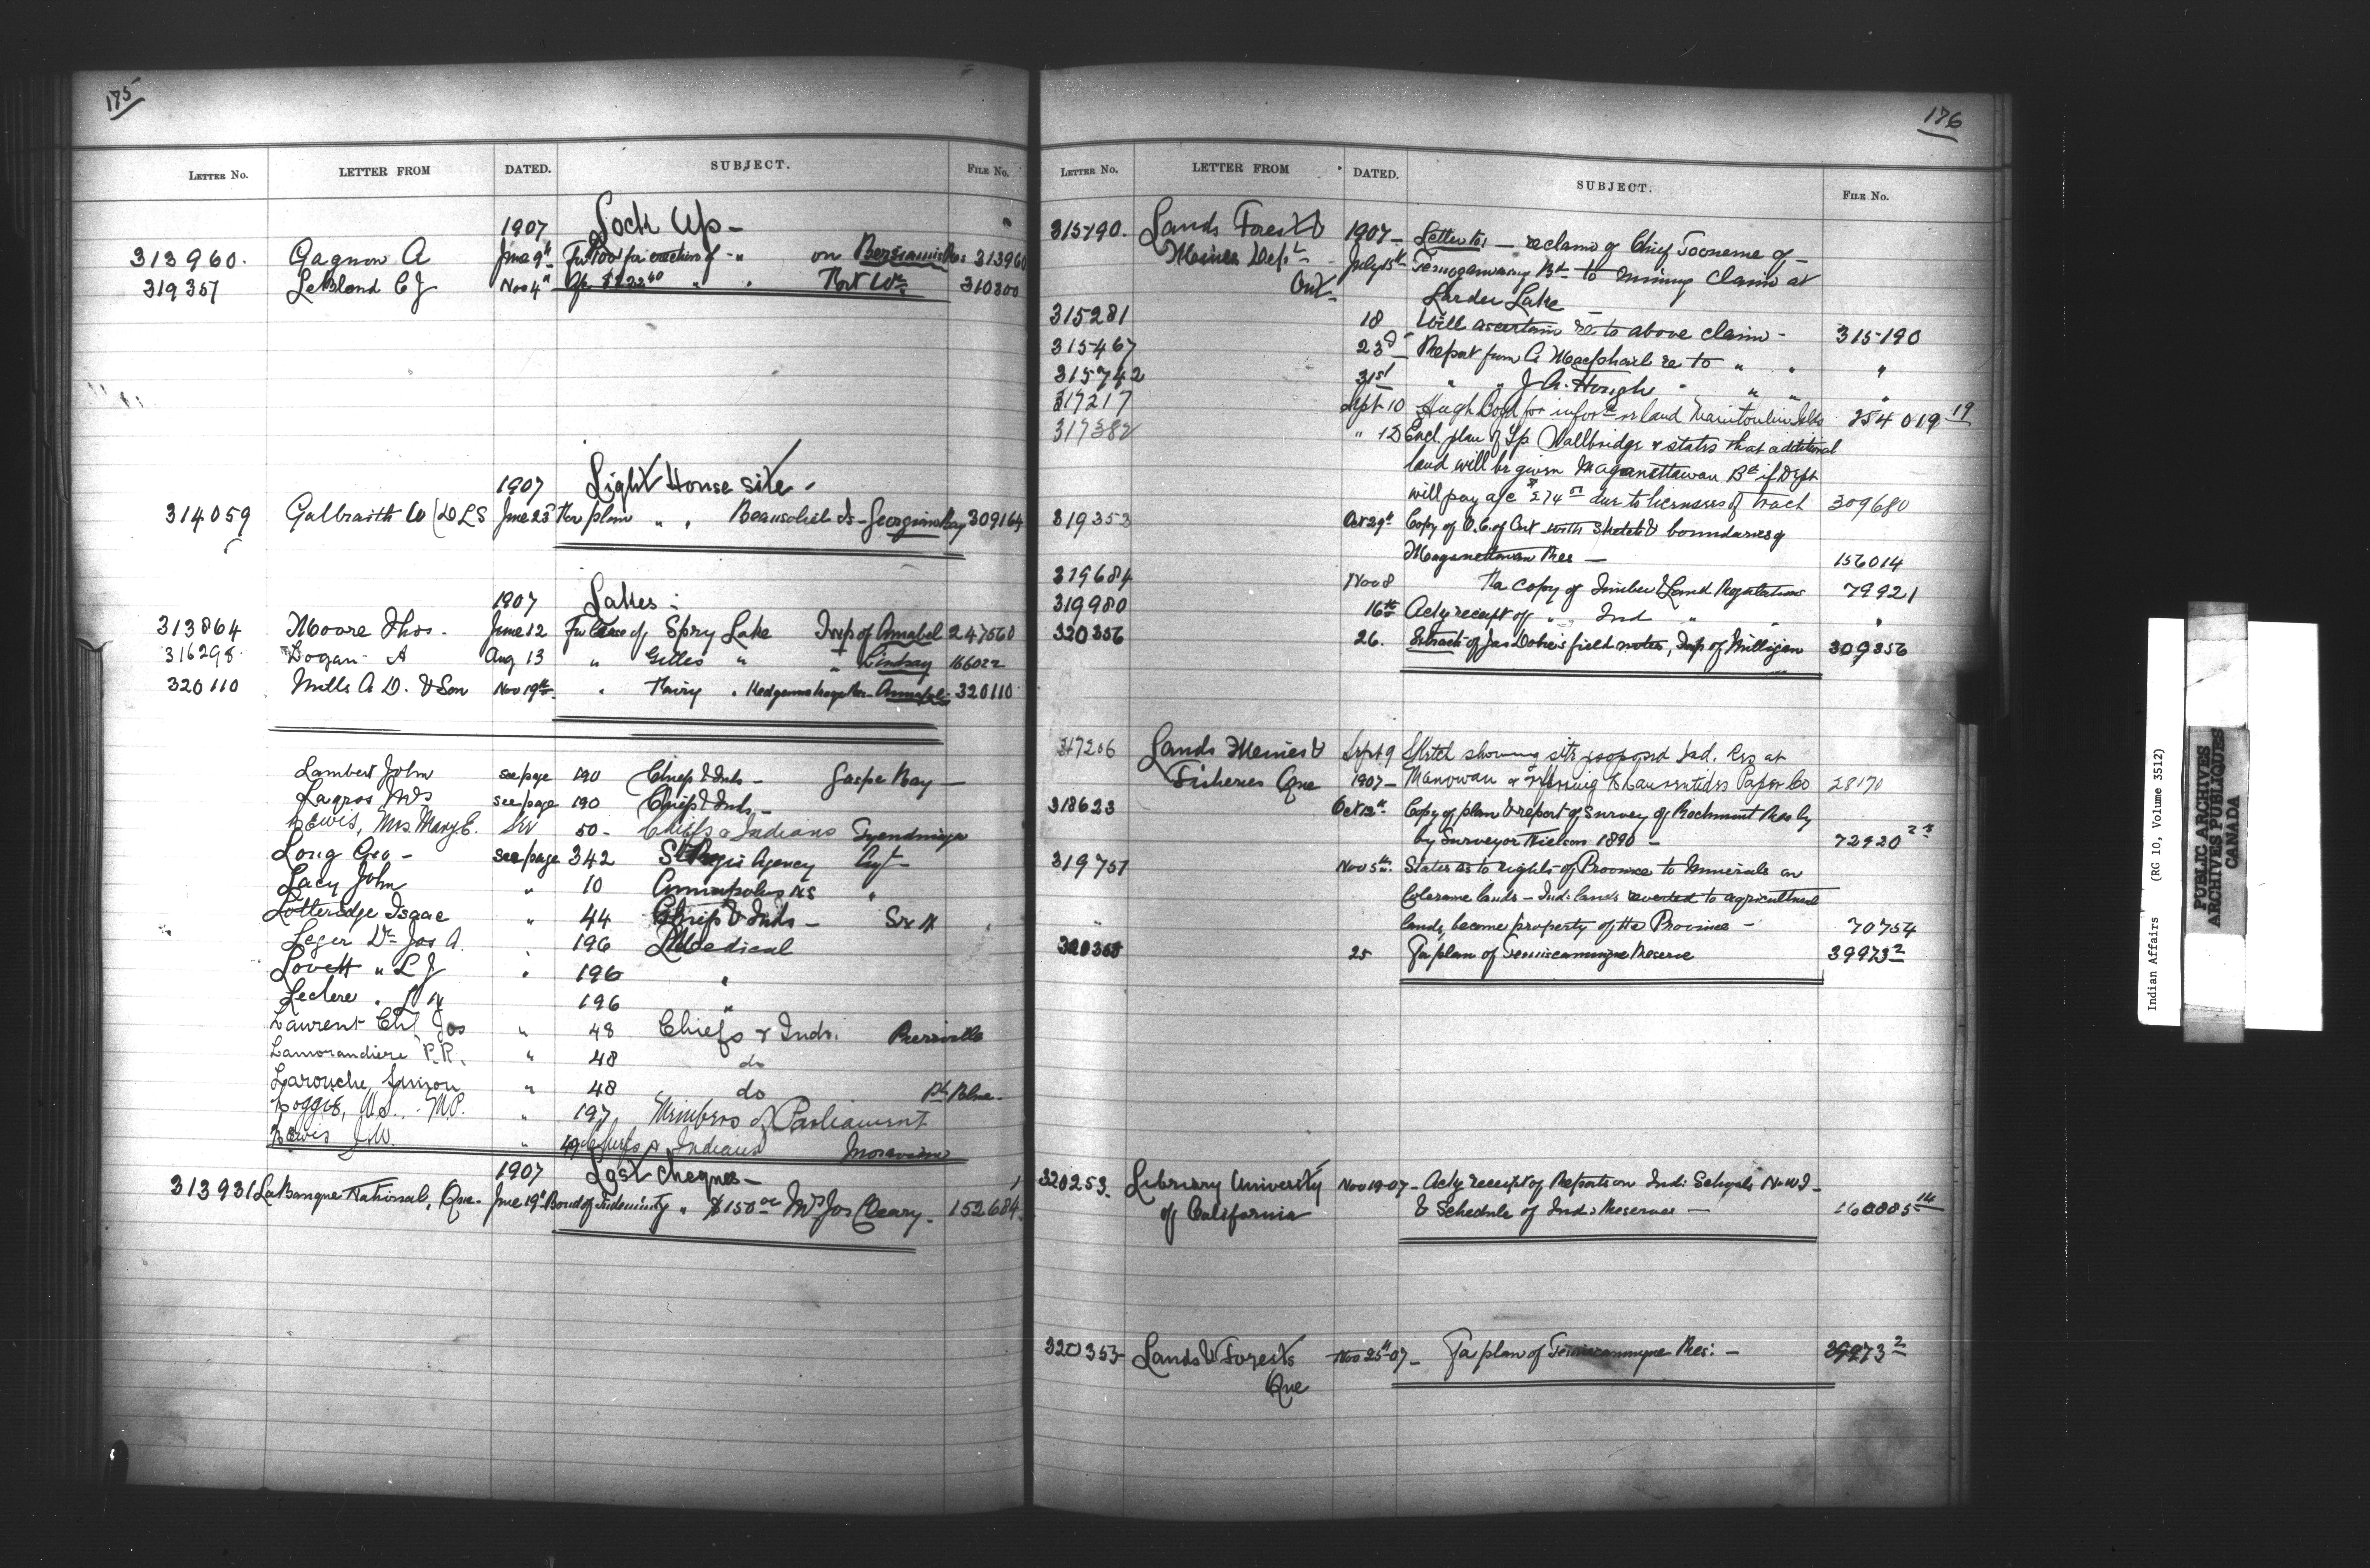 175
LETTER No. LETTER FROM DATED. SUBJECT. FILE No.
1907 Lock Up -
313960. Gagnon A June 9th For 100 for erection of " on Bersimis Res 313960
319357 LeBlond C J Nov 4" " " Fort Wm. 310800
1907 Light House site.
314059 Galbraith W (DLS June 25 For plan " " Beausoliel Is - Georgian Bay 309164
1907 Lakes :
313864 Moore Thos. June 12 For lease of Spry Lake Twp of Amabel 247560
316298 Logan A Aug 13 " Gilles " " Lindsay 166022
320110 Mills A. D. & Son Nov 19th " " Amabel 320110
Lambert John see page 190 Chief & Inds - Gaspe Bay -
Lagros see page 190 Chief & Inds -
Lewis, Mrs Mary E. see 50 - Chiefs & Indians Tyendinaga
Long Geo - see page 342 St Regis Agency Agt -
Lacy John " 10 Annapolis NS "
Lotteridge Isaac " 44 Chief & Inds - Six N
Leger Dr Jos A. " 196 Medical
Lovett " L J " 196 "
Leclere " 196 "
Laurent Chf, Jos " 48 Chiefs & Inds. Pierreville
Lamorandiere P.R. " 48 do
Larouche, Simon " 48 do Pt. Blue -
Loggie, W.S. M.P. " 197 Members of Parliament
Lewis J.W. " 49 Chiefs & Indians Moravian
1907 Lost Cheques -
313931 La Banque National, Que - June 19th Bond of Indemnity " $150 00 Mrs Jos Cleary - 152684
176
LETTER No. LETTER FROM DATED. SUBJECT. FILE No.
315190. Lands Forest & 1907 - Letter to: - re claim of Chief Tooneme of -
Mines Dept - July 15th Temogamaing Bd to mining claim at
Ont - Larder Lake
315281 18 Will ascertain re to above claim - 315190
315467 23d Report from A Macphail re to " " "
315742 31st " " J A. Hough " " " "
317217 Sept 10 Hugh Boyd for infor re land Manitoulin Isld 254019 19
317382 " 12 Encl. plan of Tp Wallbridge & states that additional
land will be given Maganettawan Bd if Dept
will pay a/c $274 51 due to licensees of tract 309680
319353 Oct 29th Copy of O.C. of Ont with Sketch & boundaries of
Maganettawan Res - 156014
319684 Nov 8 Fa copy of Timber & Land Regulations 79921
319980 16th Ackg receipt of " Ind " " "
320356 26. Extract of Jas Dobie's field notes, Twp of Milligan 309356
317206 Lands Mines & Sept 9 Sketch showing site proposed Ind. Res at
Fisheries Que 1907 - Manowan & referring to Laurentides Paper Co 28170
318623 Oct 12th Copy of plan & report of Survey of Rockmont Res by
by Surveyor Neilson 1890 - 72920
319757 Nov 5th States as to rights of Province to Minerals on
Colerane lands - Ind: lands reverted to agricultural
" lands, become property of the Province - 70754
320368 25 Fa plan of Temiscamingue Reserve 39973 2
320253. Library University Nov 19-07 - Ackg receipt of Reports on Ind: Schools N.W.T -
of California & Schedule of Ind: Reserves - 160885 14
320353 - Lands & Forests Nov 25th 07 - Fa plan of Temiscamingue Res: - 39973 2
Que
Indian Affairs (RG 10, Volume 3512)
PUBLIC ARCHIVES
ARCHIVES PUBLIQUES
CANADA